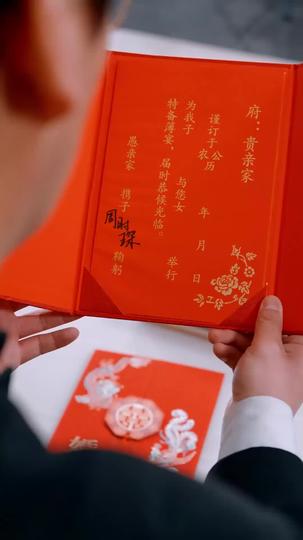 府：贵亲家
谨订于公历 年 月 日
农
为我子 与您女 举行
特备薄宴，届时恭候光临。
愚亲家 携子 周时琛 鞠躬